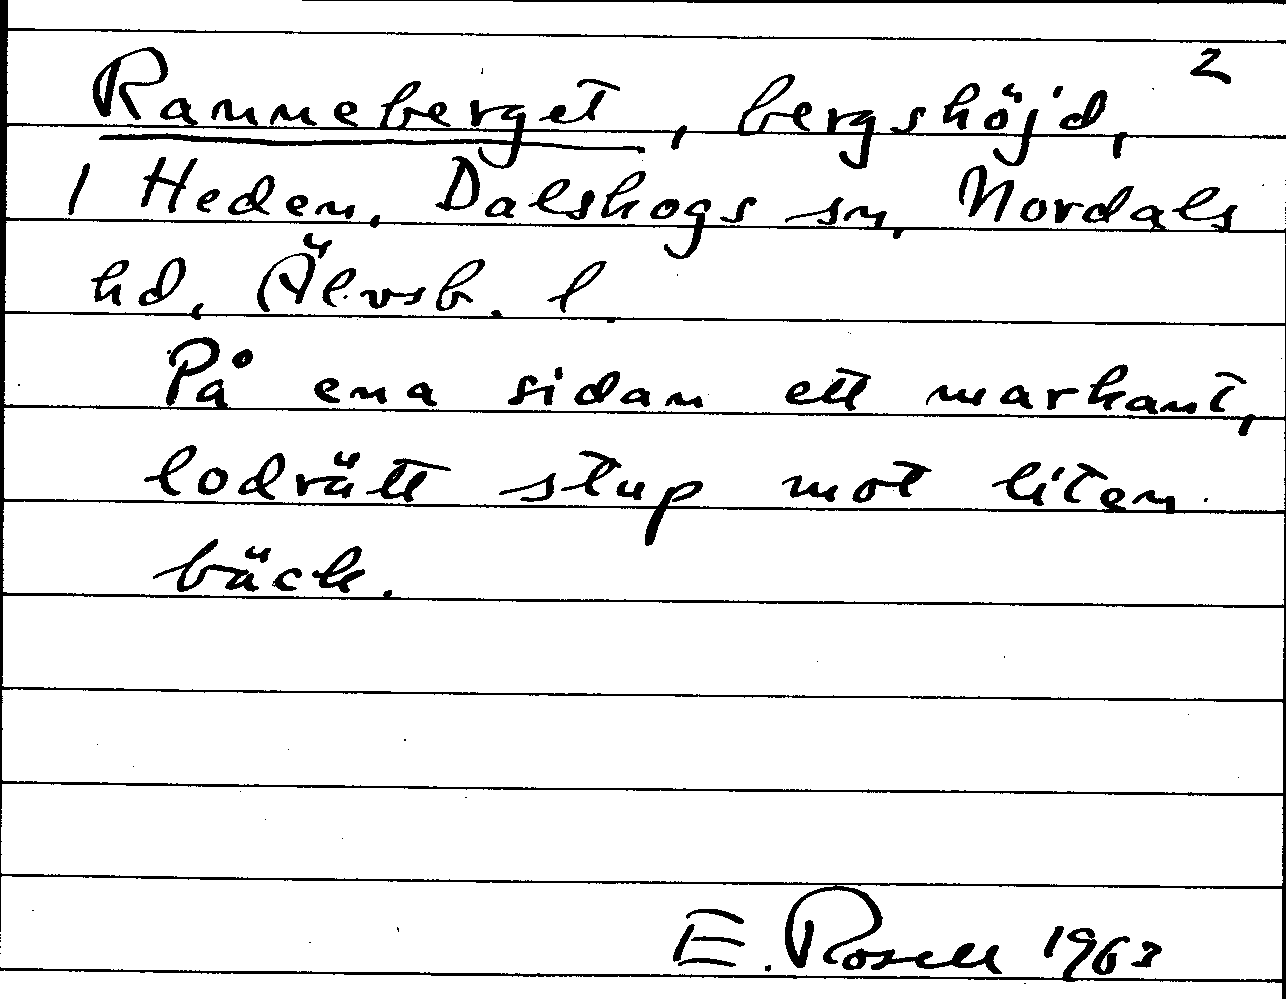 2
Ranneberget, bergshöjd,
1 Heden, Dalskogs sn, Nordals
hd, Älvsb. l.
På ena sidan ett markant,
lodrätt stup mot liten
bäck.
E. Rosell 1963